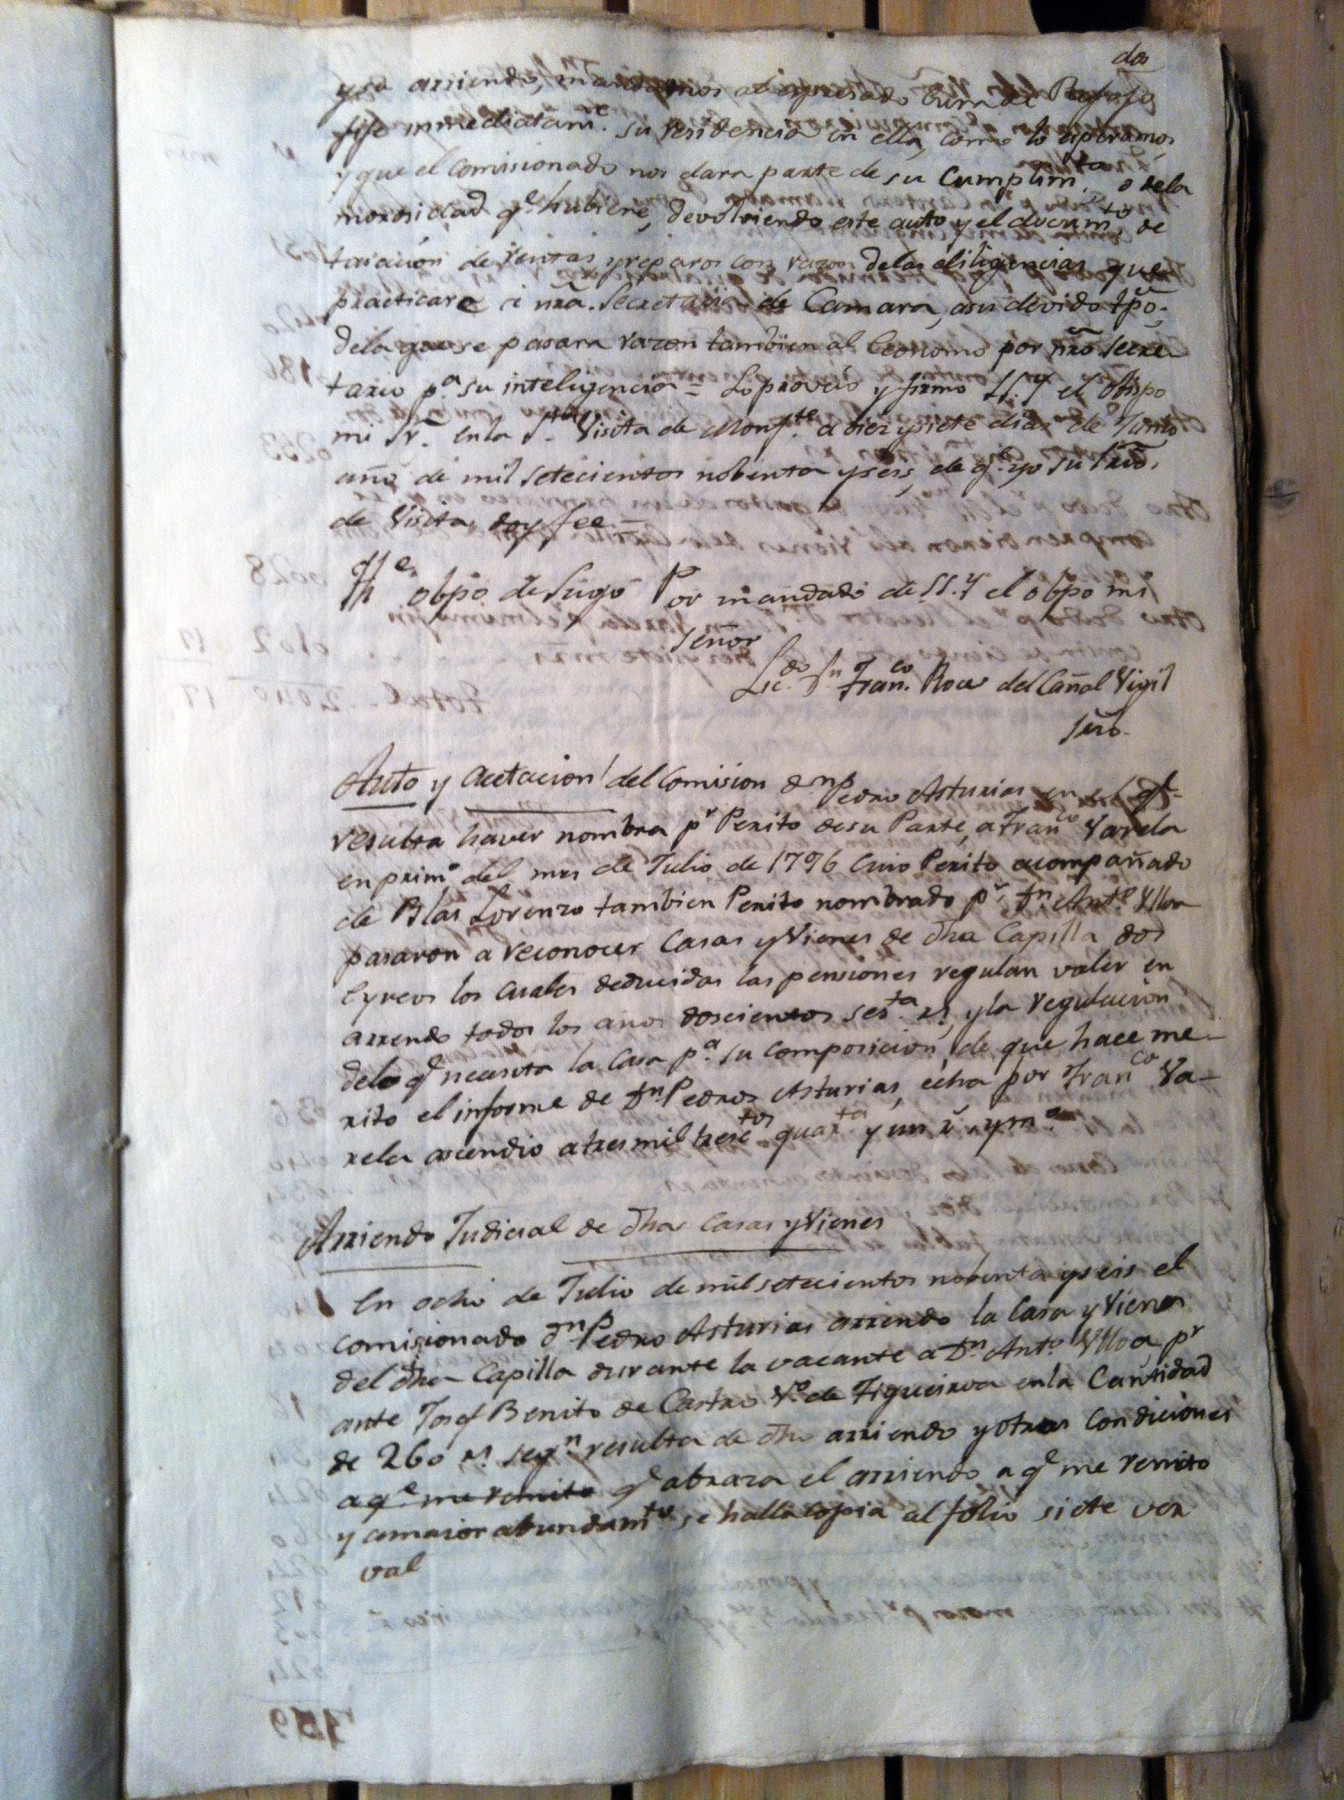 do
y su arriendo, mandamos al expresado Cura de
fije inmediatamte. su residencia en ella, como lo esperamos,
y que el Comisionado nos dara parte de su Cumplimto. o dela
morosidad qe. hubiere, devolviendo este auto y el documto. de
tasación de rentas y reparos con razon delas diligencias que
practicare á nra. Secretaria de Camara, asu devido tpō.
dela que se pasara razon tambien al Economo por nrō Secre
tario pa. su inteligencia = Lo proveió y firmo S.S.Y el Obispo
mi Sr. en la Sta. Visita de Monfte. a diez y siete dias de Junio
año de mil setecientos nobenta y seis, de qe. yo su Srio.
de Visita, doy fee =
obpō. de Lugo Por mandado de S.S.Y el obpō mi
señor
Licdo. Dn Franco. Roca del Cañal Vigil
Srio.
Auto y acetacion del Comision dn Pedro Asturias en el qe
resulta haver nombra pr Perito desu Parte, a Franco Varela
en primo. del mes de Julio de 1796 Cuio Perito acompañado
de Blas Lorenzo tambien Perito nombrado pr. Dn. Anto. Ulloa
pasaron a reconocer Casas y Vienes de dha Capilla dos
los cuales deducidas las pensiones regulan valer en
arrendo todos los años doscientos sesta. rs, y la regulacion
delo qe necesita la casa pa. su composicion, de que hace me-
rito el informe de Dn. Pedro Asturias, echa por Franco Va-
rela ascendio a tres mil tresctos quarta y un rs. y mo.
Arriendo Judicial de dha Casas y Vienes
En ocho de Julio de mil setecientos nobenta y seis el
comisionado Dn Pedro Asturias arriendo la Casa y Vienes
del dha Capilla durante la vacante a Dn Anto. Ulloa pr
ante Josef Benito de Castro Vo. de Figueiroa enla Cantidad
de 260 rs. segn. resulta de dho arriendo y otras Condiciones
a qe. me remito qe abraza el arriendo a qe me remito
y amaior abundamto. se halla copia al folio siete ver
val